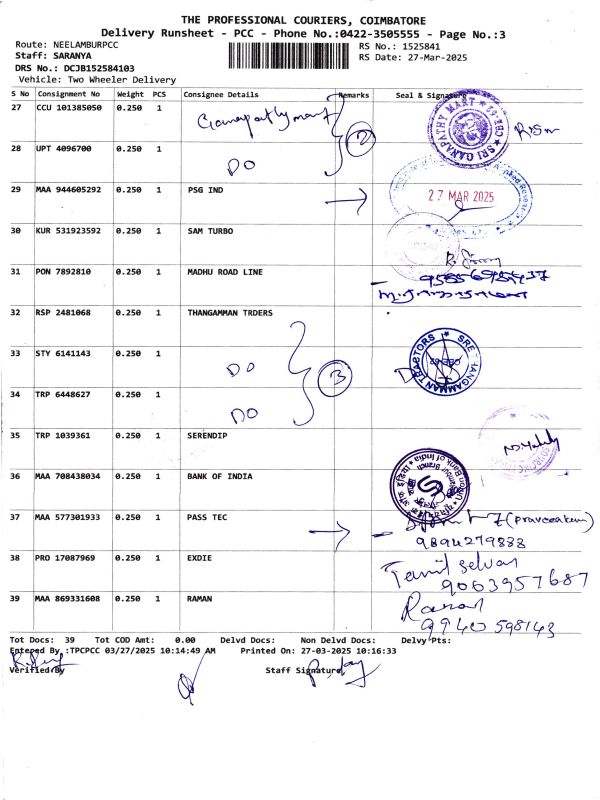 THE PROFESSIONAL COURIERS, COIMBATORE
Delivery Runsheet - PCC - Phone No.:0422-3505555 - Page No.:3
Route: NEELAMBURPCC RS No.: 1525841
Staff: SARANYA RS Date: 27-Mar-2025
DRS No.: DCJB152584103
Vehicle: Two Wheeler Delivery
S No Consignment No Weight PCS Consignee Details Remarks Seal & Signature
27 CCU 101385050 0.250 1 Ganapathy mart 2 SRI GANAPATHY MART
28 UPT 4096700 0.250 1 DO
29 MAA 944605292 0.250 1 PSG IND 27 MAR 2025
30 KUR 531923592 0.250 1 SAM TURBO
31 PON 7892810 0.250 1 MADHU ROAD LINE
32 RSP 2481068 0.250 1 THANGAMMAN TRDERS
33 STY 6141143 0.250 1 DO 3
34 TRP 6448627 0.250 1 DO
35 TRP 1039361 0.250 1 SERENDIP
36 MAA 708438034 0.250 1 BANK OF INDIA Bank of India
37 MAA 577301933 0.250 1 PASS TEC (praveenkum)
9894279888
38 PRO 17087969 0.250 1 EXDIE Tamil selvan
9003957687
39 MAA 869331608 0.250 1 RAMAN Raman
9940598143
Tot Docs: 39 Tot COD Amt: 0.00 Delvd Docs: Non Delvd Docs: Delvy Pts:
Entered By :TPCPCC 03/27/2025 10:14:49 AM Printed On: 27-03-2025 10:16:33
Verified By Staff Signature